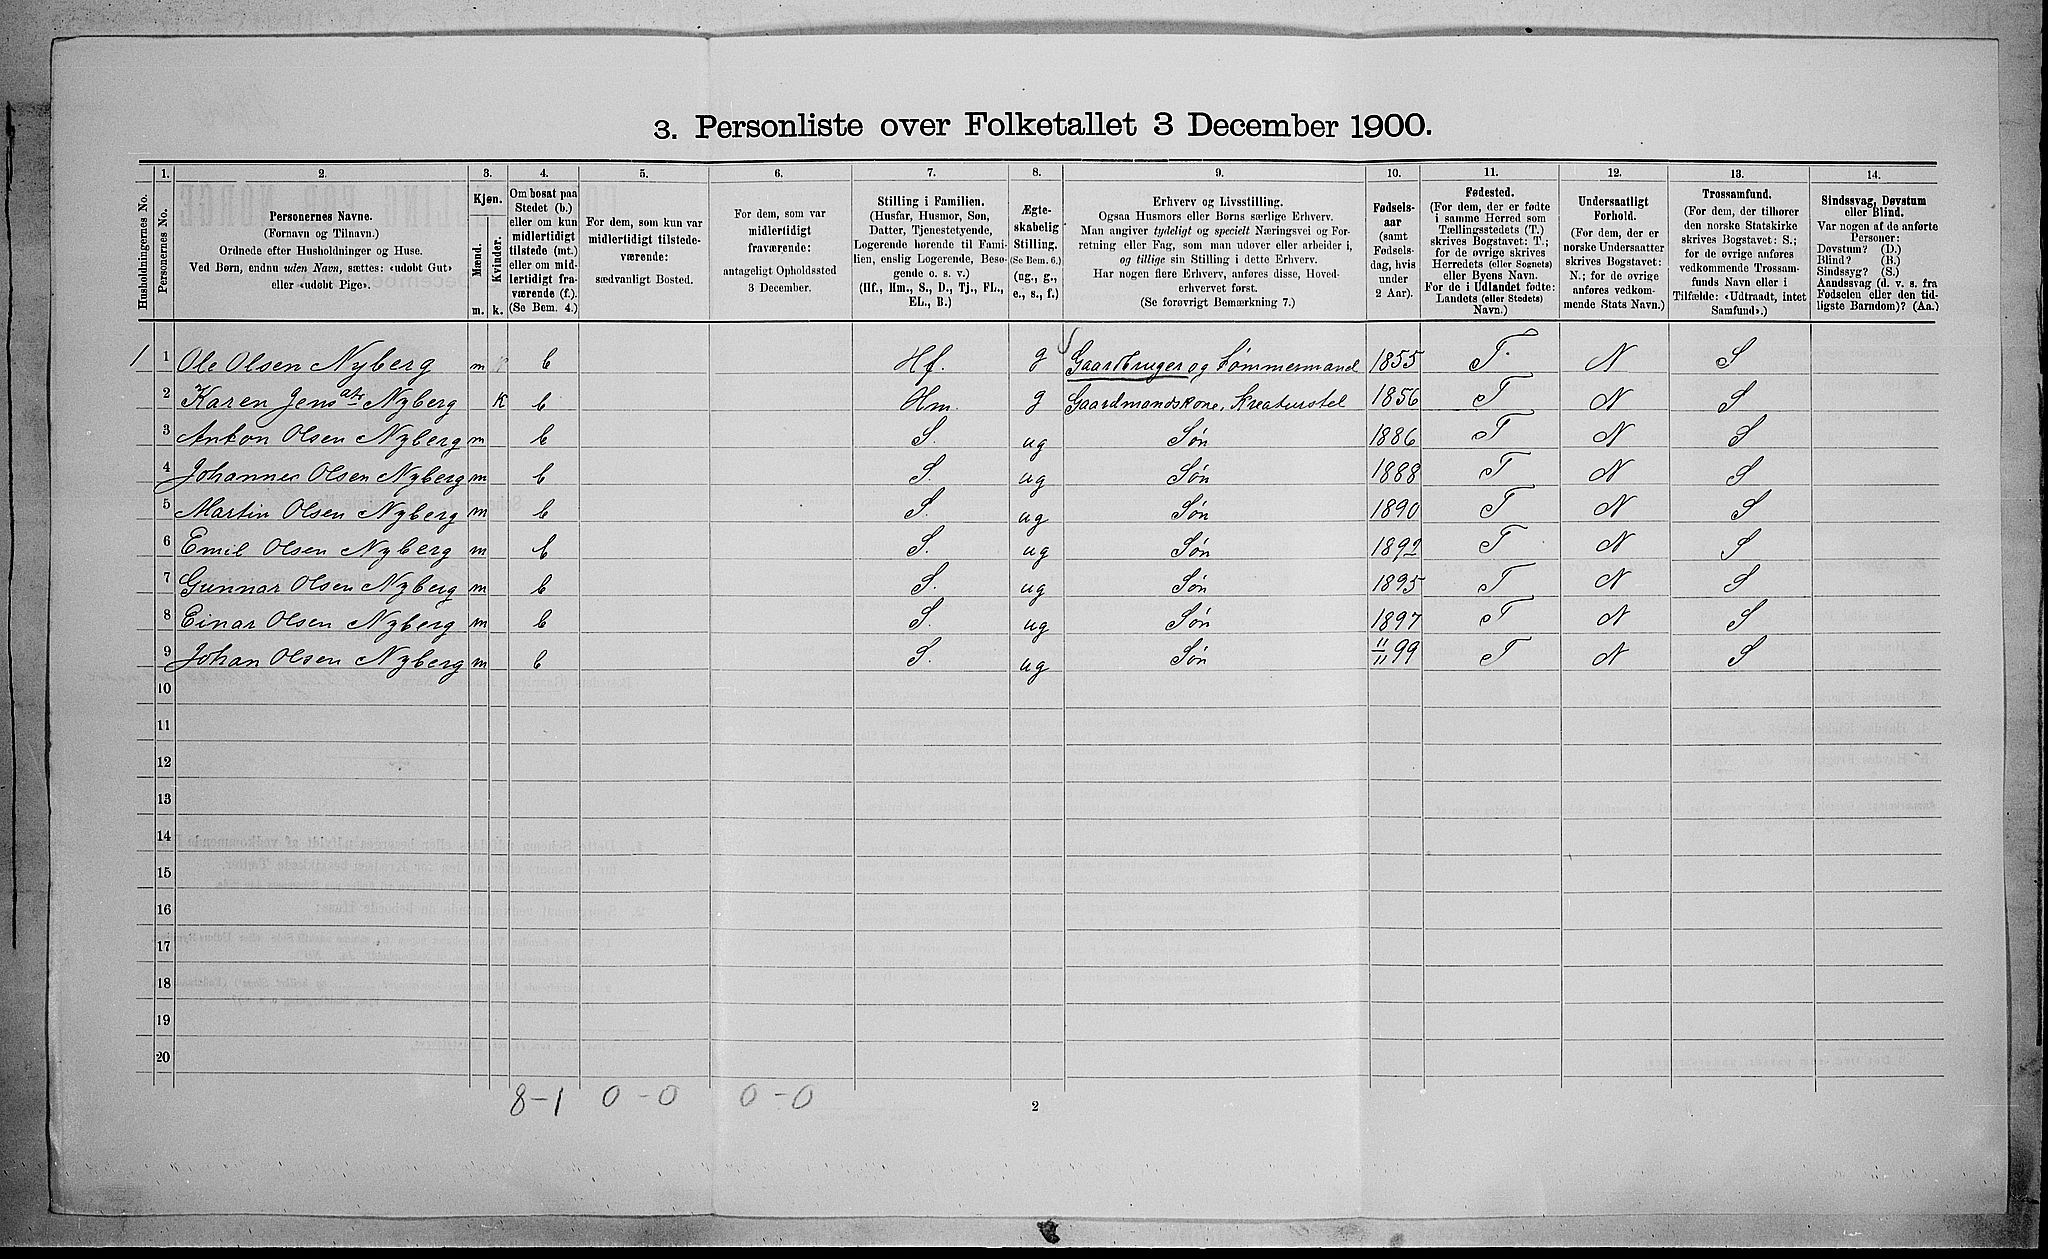 3. Personliste over Folketallet 3 December 1900.
1. 2. 3. 4. 5. 6. 7. 8. 9. 10. 11. 12. 13. 14.
Husholdningernes No.
Personernes No.
Personernes Navne.
(Fornavn og Tilnavn.)
Ordnede efter Husholdninger og Huse.
Ved Børn, endnu uden Navn, sættes: «udøbt Gut»
eller «udøbt Pige».
Kjøn.
Mænd.
Kvinder.
m. k.
Om bosat paa
Stedet (b.)
eller om kun
midlertidigt
tilstede (mt.)
eller om mid-
lertidigt fra-
værende (f.).
(Se Bem. 4.)
For dem, som kun var
midlertidigt tilstede-
værende:
sædvanligt Bosted.
For dem, som var
midlertidigt
fraværende:
antageligt Opholdssted
3 December.
Stilling i Familien.
(Husfar, Husmor, Søn,
Datter, Tjenestetyende,
Logerende hørende til Fami-
lien, enslig Logerende, Besø-
gende o. s. v.)
(Hf., Hm., S., D., Tj., FL.,
EL., B.)
Ægte-
skabelig
Stilling.
(Se Bem. 6.)
(ug., g.,
e., s., f.)
Erhverv og Livsstilling.
Ogsaa Husmors eller Børns særlige Erhverv.
Man angiver tydeligt og specielt Næringsvei og For-
retning eller Fag, som man udover eller arbeider i,
og tillige sin Stilling i dette Erhverv.
Har nogen flere Erhverv, anføres disse, Hoved-
erhvervet først.
(Se forøvrigt Bemærkning 7.)
Fødsels-
aar
(samt
Fødsels-
dag, hvis
under
2 Aar).
Fødested.
(For dem, der er fødte
i samme Herred som
Tællingsstedets (T.)
skrives Bogstavet: T.;
for de øvrige skrives
Herredets (eller Sognets)
eller Byens Navn.
For de i Udlandet fødte:
Landets (eller Stedets)
Navn.)
Undersaatligt
Forhold.
(For dem, der er
norske Undersaatter
skrives Bogstavet:
N.; for de øvrige
anføres vedkom-
mende Stats Navn.)
Trossamfund.
(For dem, der tilhører
den norske Statskirke
skrives Bogstavet: S.;
for de øvrige anføres
vedkommende Trossam-
funds Navn eller i
Tilfælde: «Udtraadt, intet
Samfund».)
Sindssvag, Døvstum
eller Blind.
Var nogen af de anførte
Personer:
Døvstum? (D.)
Blind? (B.)
Sindssyg? (S.)
Aandssvag (d. v. s. fra
Fødselen eller den tid-
ligste Barndom)? (Aa.)
1 1 Ole Olsen Nyberg m b Hf. g Gaardbruger og Tømmermand 1855 T. N S
2 Karen Jensdtr Nyberg K b Hm. g Gaardmandskone, Kreaturstel 1856 T N S
3 Anton Olsen Nyberg m b S. ug Søn 1886 T N S
4 Johannes Olsen Nyberg m b S. ug Søn 1888 T N S
5 Martin Olsen Nyberg m b S. ug Søn 1890 T N S
6 Emil Olsen Nyberg m b S. ug Søn 1892 T N S
7 Gunnar Olsen Nyberg m b S. ug Søn 1895 T N S
8 Einar Olsen Nyberg m b S. ug Søn 1897 T N S
9 Johan Olsen Nyberg m b S. ug Søn 11/11 99 T N S
10
11
12
13
14
15
16
17
18
19
20
8-1 0-0 0-0
2